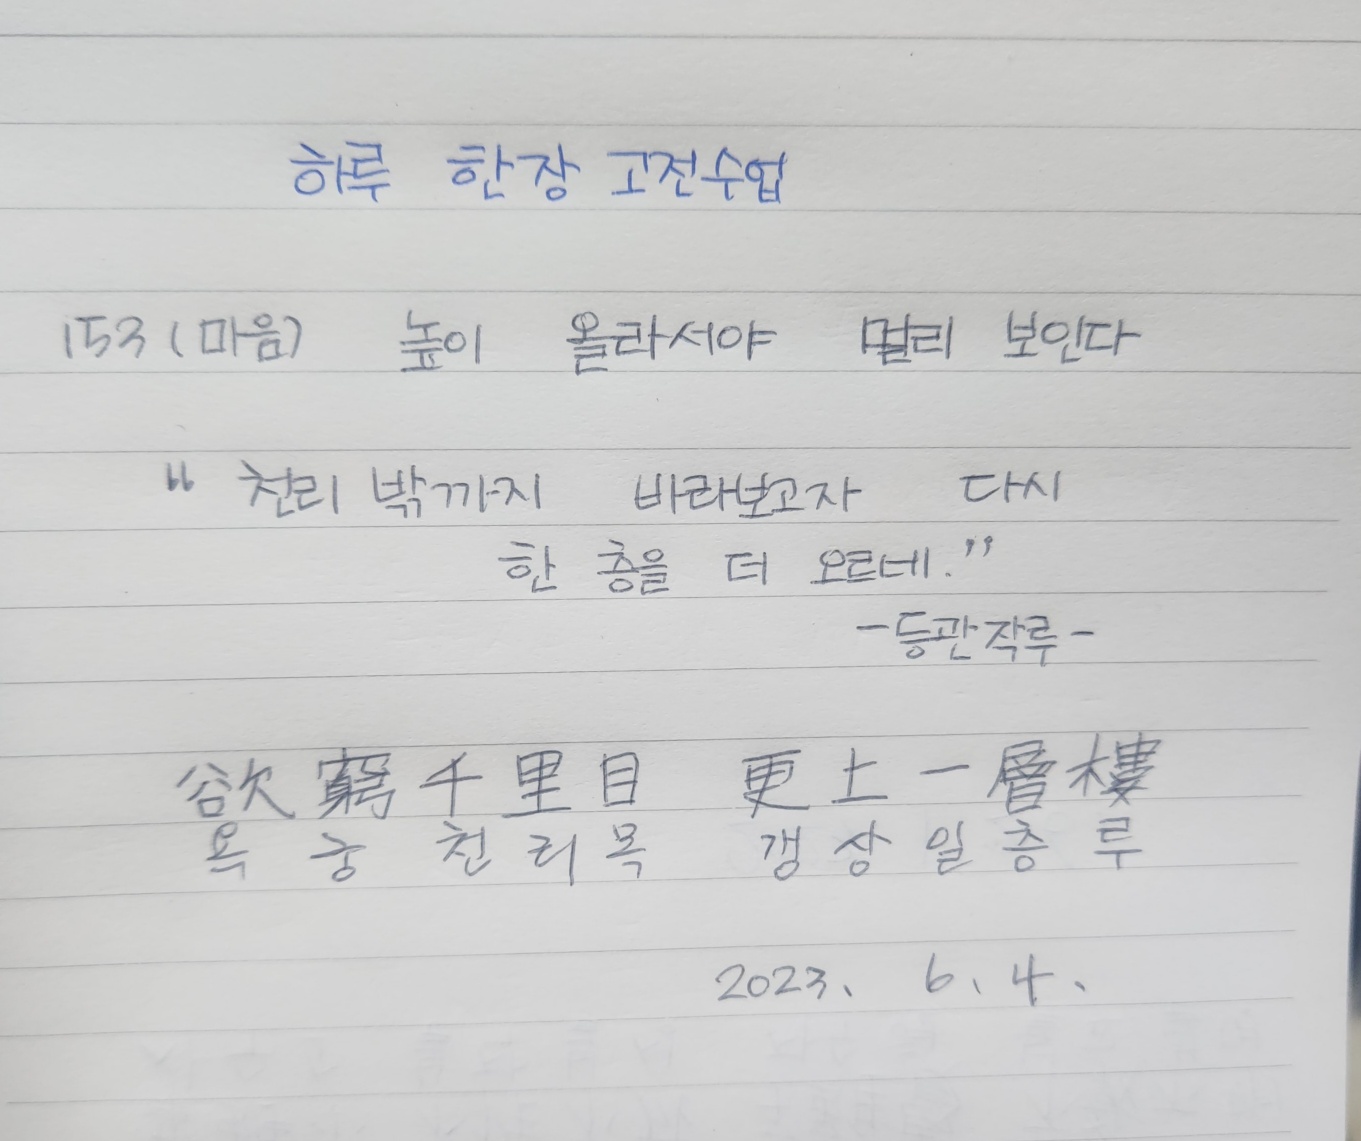 하루 한장 고전수업
153 (마음) 높이 올라서야 멀리 보인다
“ 천리 밖까지 바라보고자 다시
한 층을 더 오르네.”
- 등관작루 -
欲窮千里目 更上一層樓
욕 궁 천 리 목 갱 상 일 층 루
2023. 6. 4.